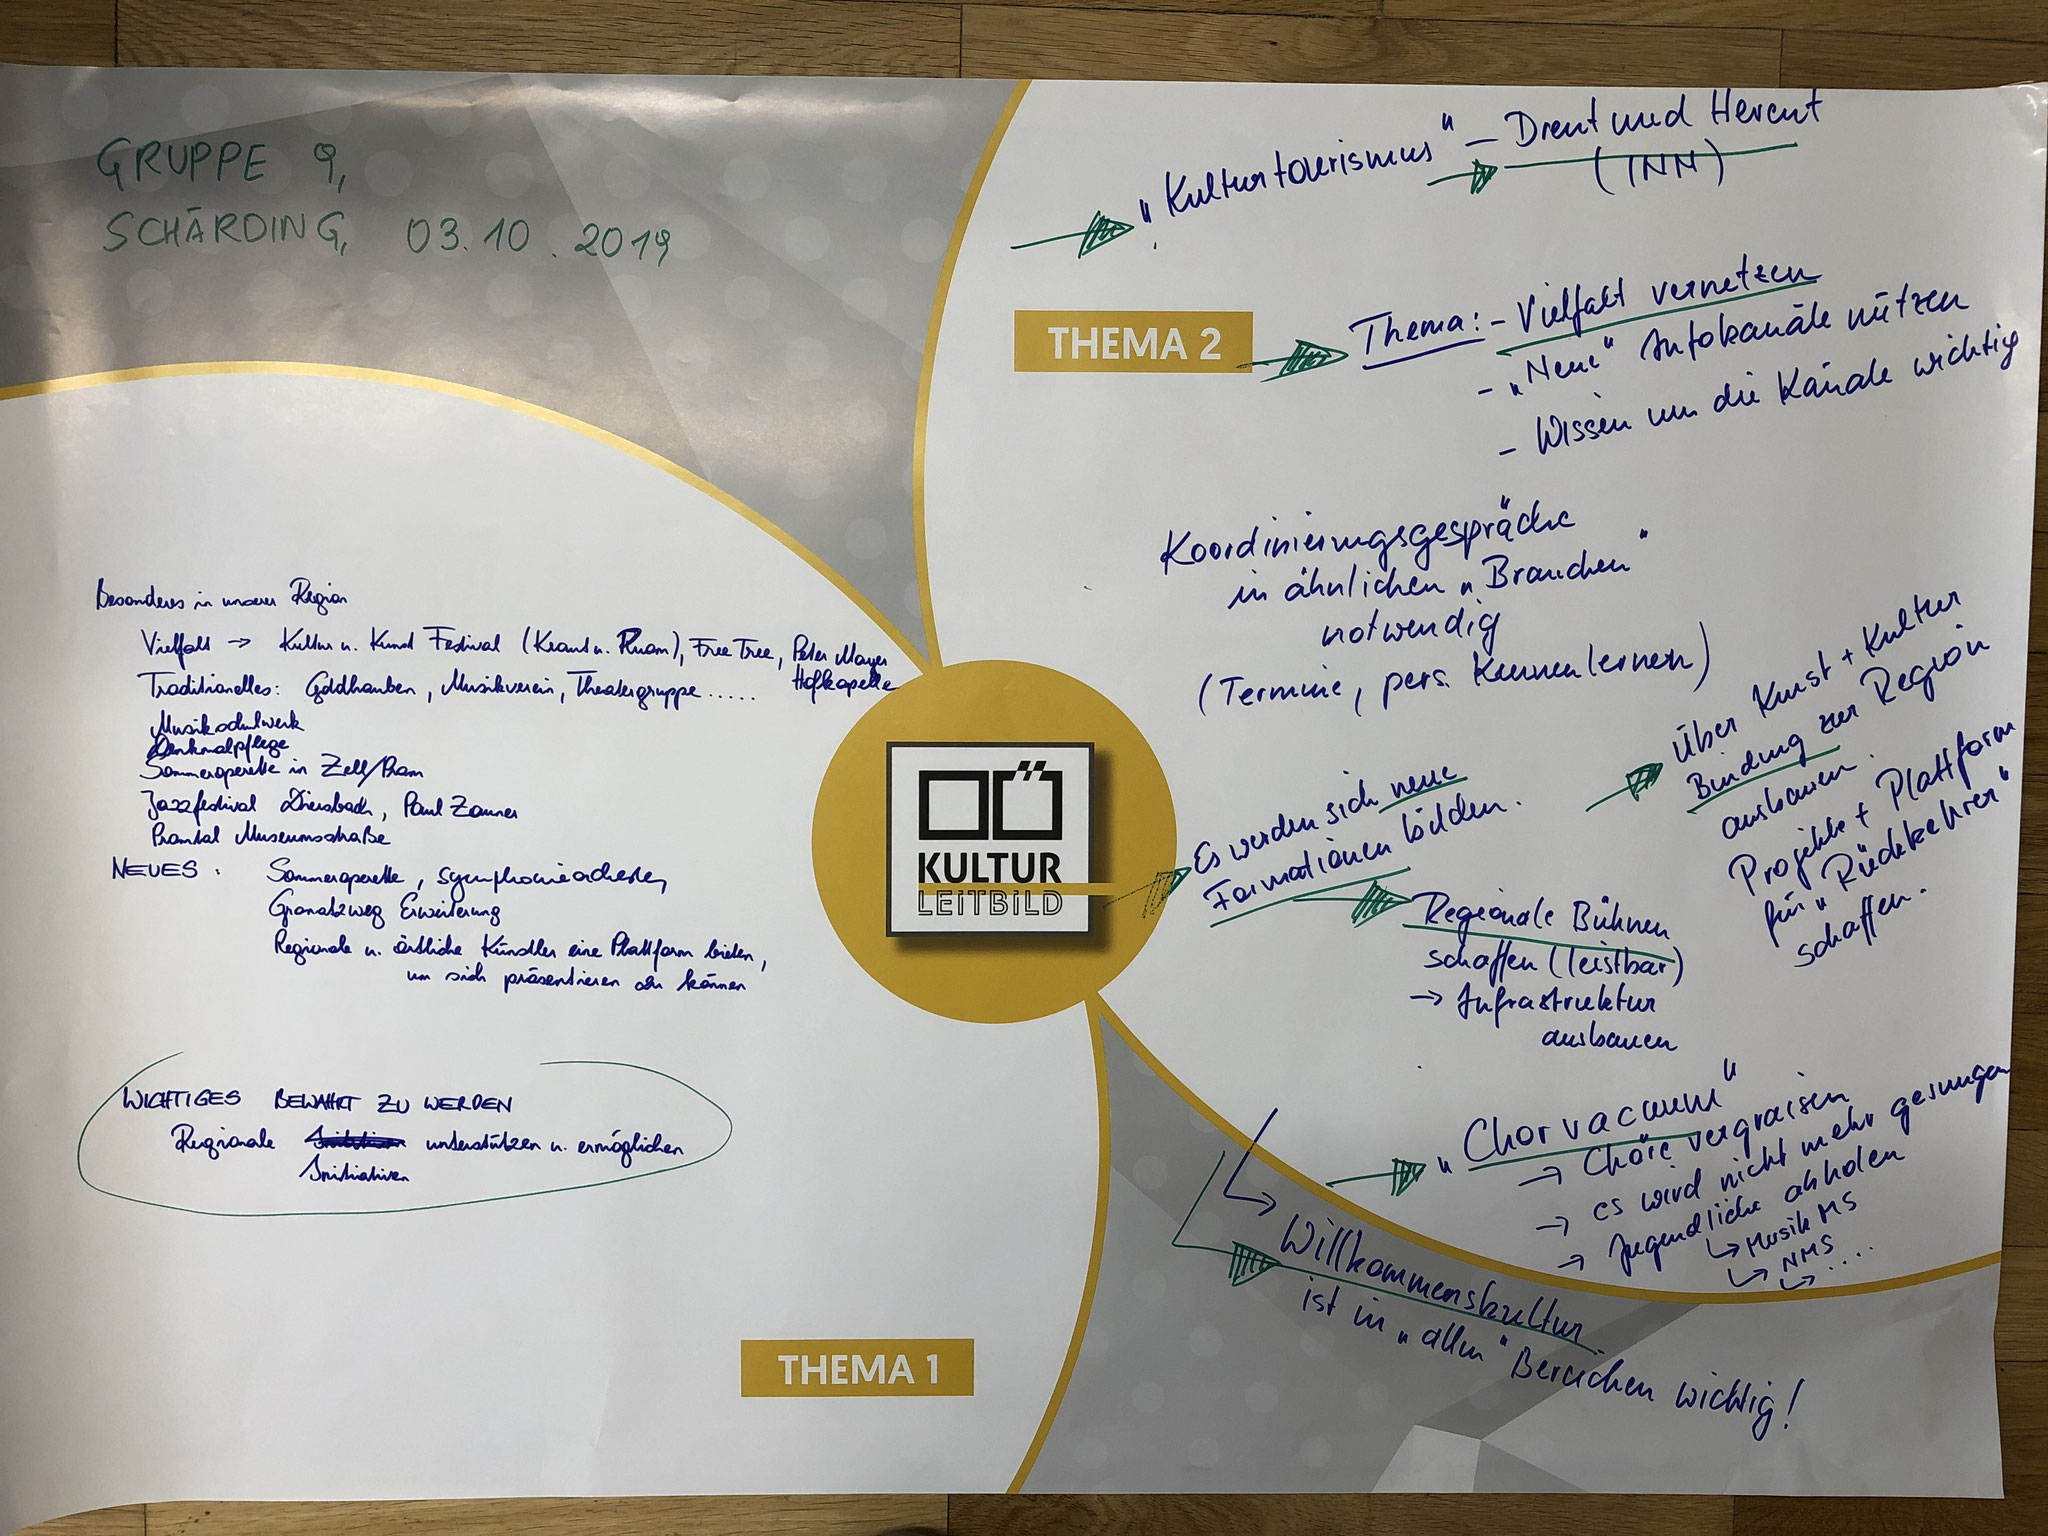 GRUPPE 9,
SCHÄRDING, 03.10.2019
Besonderes in unserer Region
Vielfalt → Kultur u. Kunst Festival (Kraut u. Ruam), Free Tree, Peter Mayer
Hofkapelle
Traditionelles: Goldhauben, Musikverein, Theatergruppe .....
Musikschulwerk
Denkmalpflege
Sommeroperette in Zell/Pram
Jazzfestival Diersbach, Paul Zauner
Pramtal Museumsstraße
NEUES: Sommeroperette, Symphonieorchester,
Granatzweg Erweiterung
Regionale u. örtliche Künstler eine Plattform bieten,
um sich präsentieren zu können
WICHTIGES BEWAHRT ZU WERDEN
Regionale unterstützen u. ermöglichen
Initiativen
THEMA 1
OÖ
KULTUR
LEITBILD
THEMA 2
„Kulturtourismus" – Drent und Herent
(INN)
Thema: - Vielfalt vernetzen
- „Neue" Infokanäle nützen
- Wissen um die Kanäle wichtig
Koordinierungsgespräche
in ähnlichen „Branchen"
notwendig
(Termine, pers. Kennenlernen)
Über Kunst + Kultur
Bindung zur Region
ausbauen.
Projekte + Plattform
für „Rückkehrer"
schaffen.
Es werden sich neue
Formationen bilden.
Regionale Bühnen
schaffen (leistbar)
→ Infrastruktur
ausbauen
„Chorvacuum"
→ Chöre vergraisen
→ es wird nicht mehr gesungen
→ Jugendliche abholen
↳ Musik MS
↳ NMS
↳ ...
Willkommenskultur
ist in „allen" Bereichen wichtig!